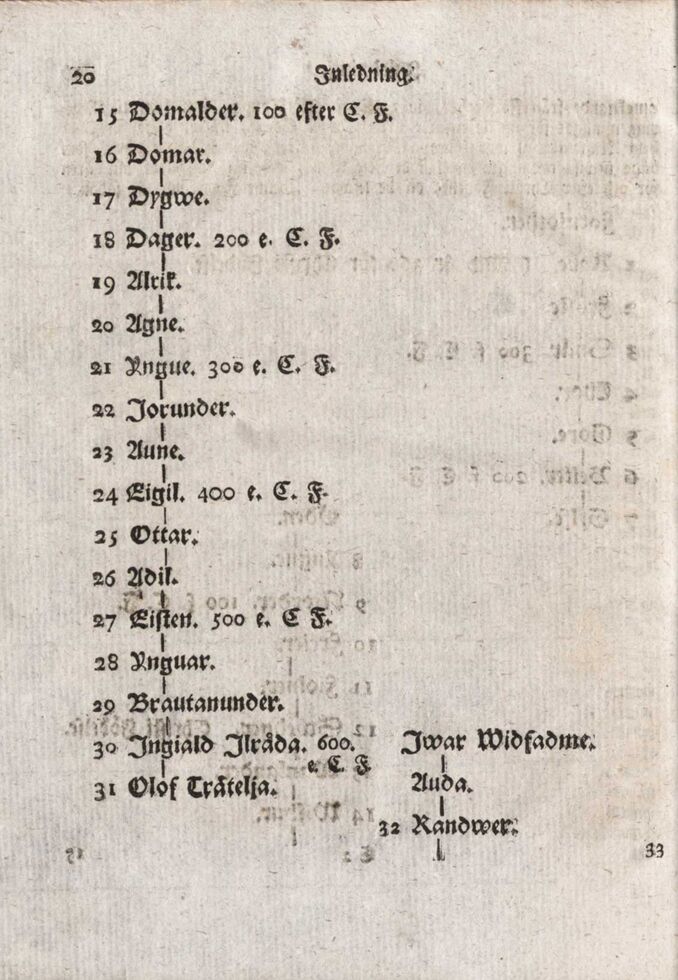 20 Inledning.
15 Domalder. 100 efter C. F.
16 Domar.
17 Dygwe.
18 Dager. 200 e. C. F.
19 Alrik.
20 Agne.
21 Yngue. 300 e. C. F.
22 Jorunder.
23 Aune.
24 Eigil. 400 e. C. F.
25 Ottar.
26 Adil.
27 Eisten. 500 e. C F.
28 Ynguar.
29 Brautanunder.
30 Ingiald Ilråda. 600. Iwar Widfadme.
e. C. F.
31 Olof Trätelja. Auda.
32 Randwer.
33